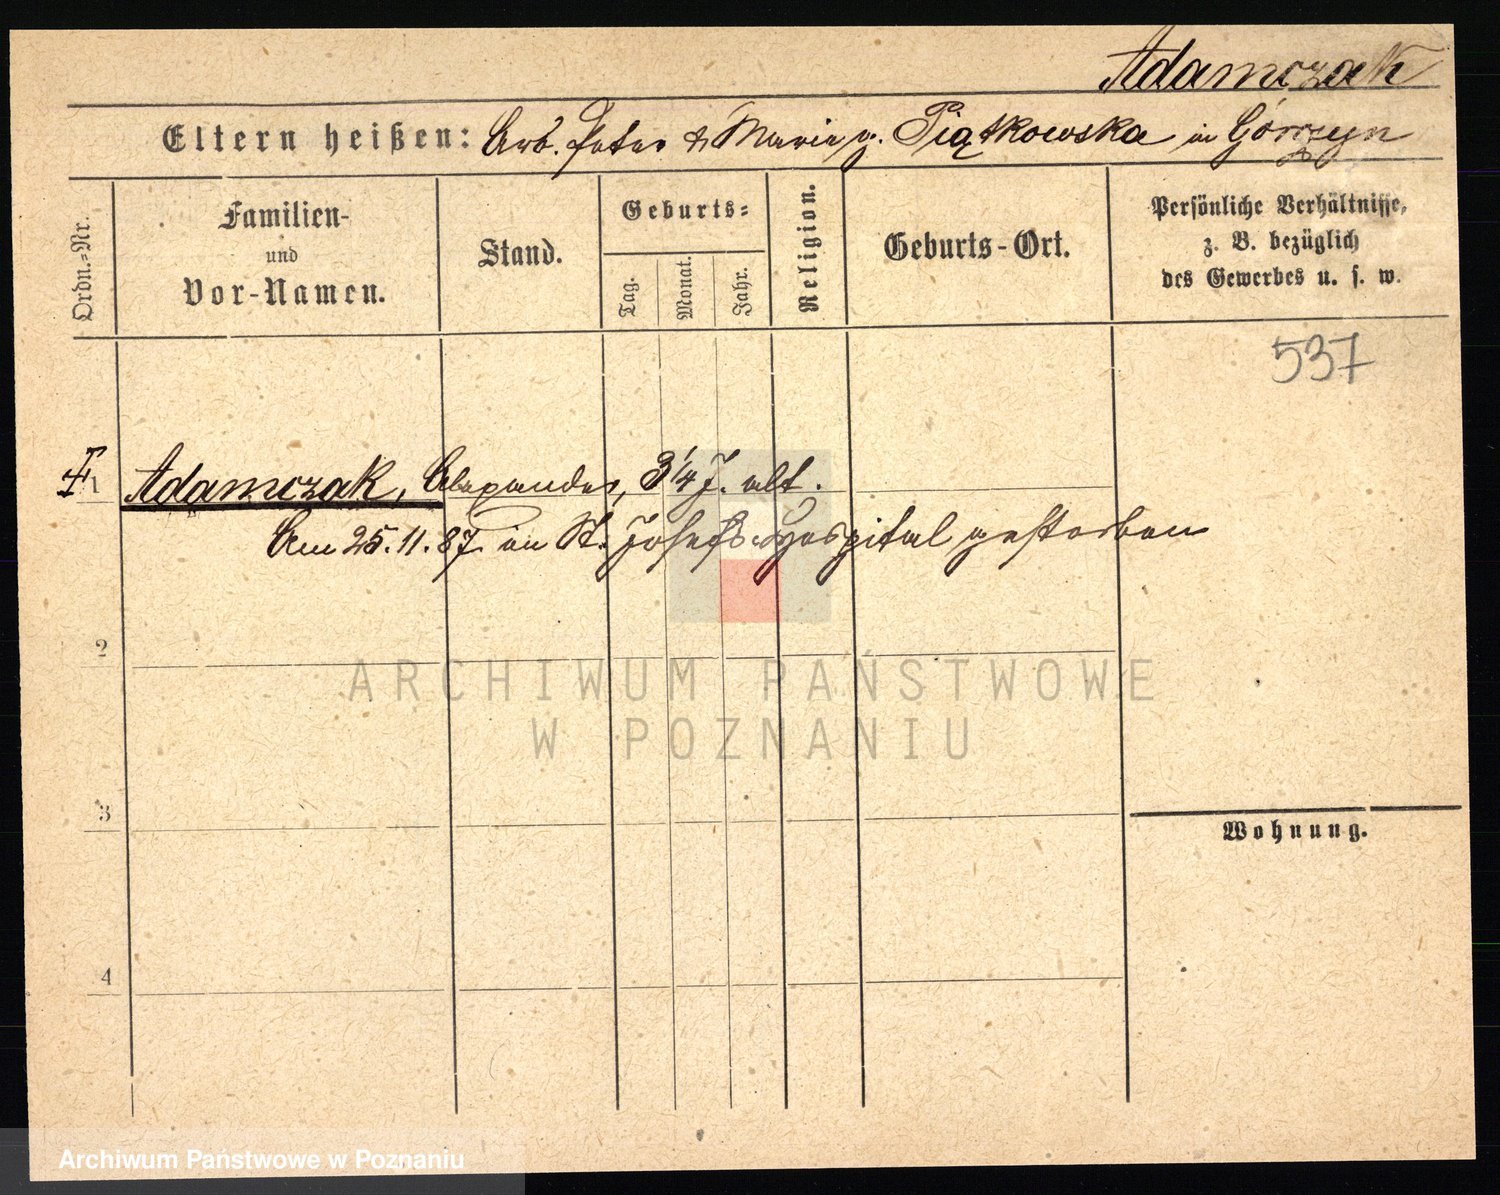 Adamczak
Eltern heißen: Arb. Peter & Marie g. Piątkowska in Górczyn
Ordn.-Nr.
Familien-
und
Vor-Namen.
Stand.
Geburts-
Tag.
Monat.
Jahr.
Religion.
Geburts-Ort.
Persönliche Verhältnisse,
z. B. bezüglich
des Gewerbes u. s. w.
537
1 Adamczak, Alexander, 3 1/4 J. alt.
Am 25.11.87. im St. Josefs-Hospital gestorben
2
ARCHIWUM PAŃSTWOWE
W POZNANIU
3
Wohnung.
4
Archiwum Państwowe w Poznaniu